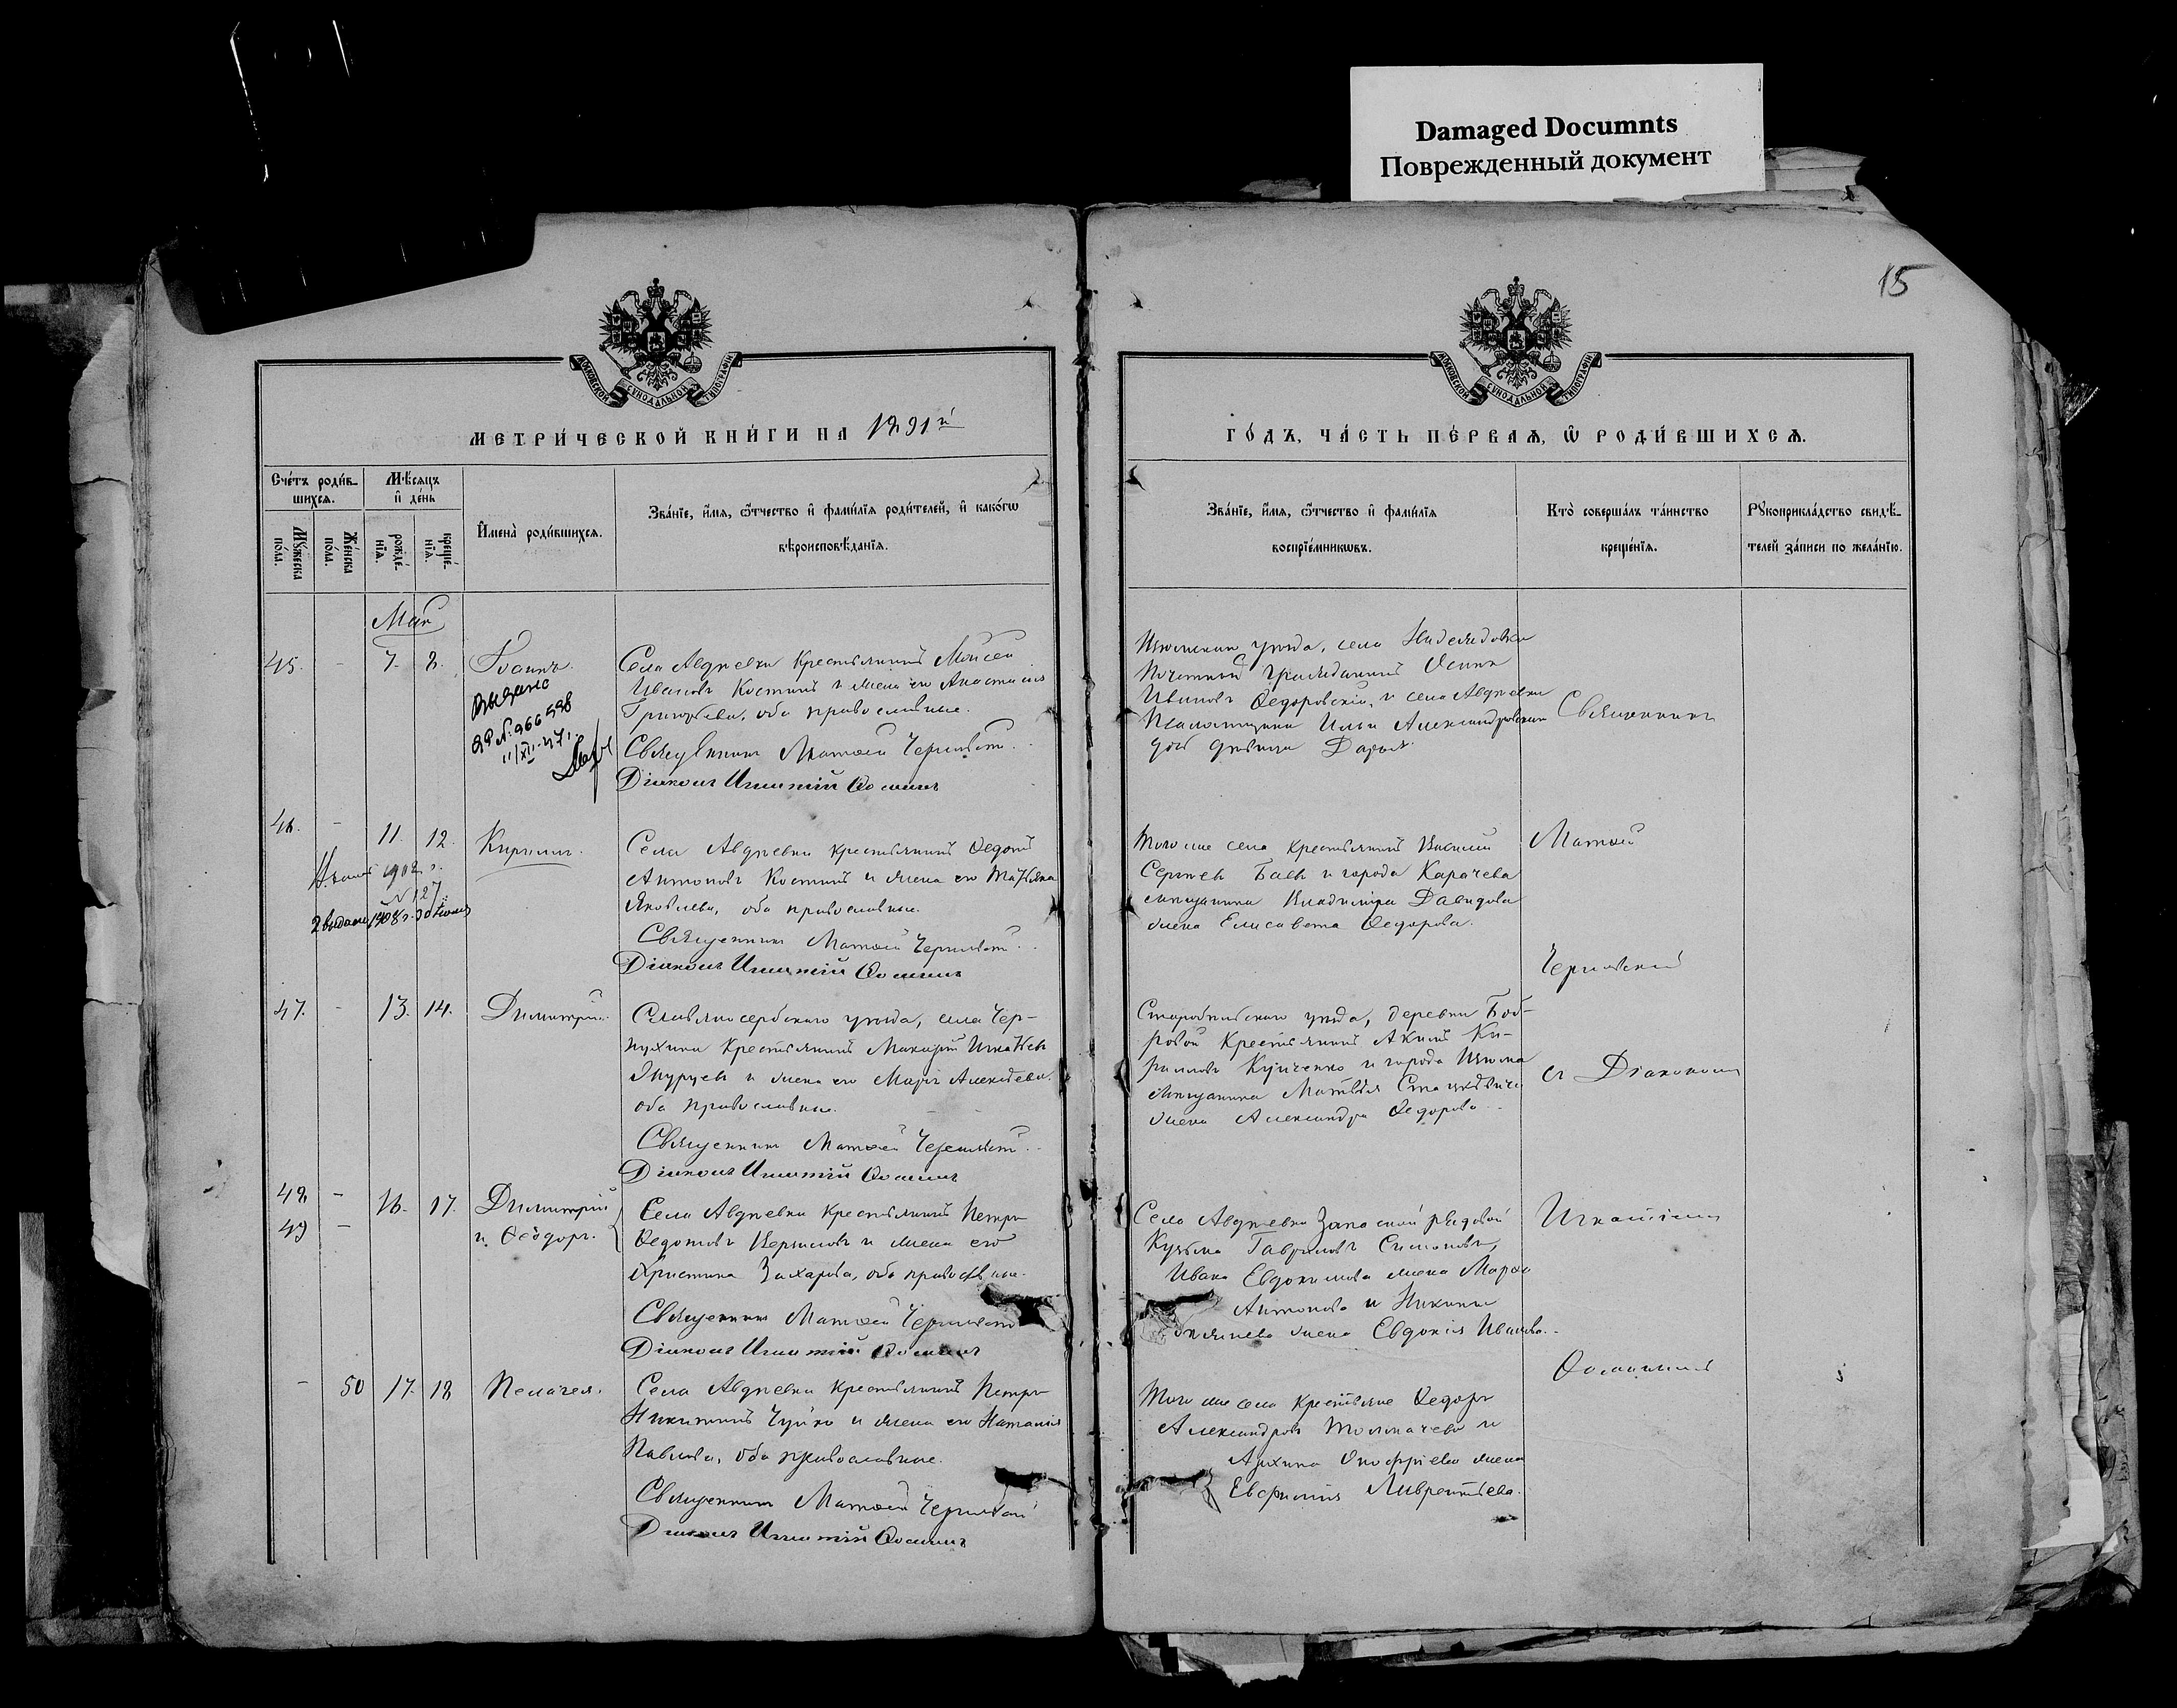 Damaged Documnts
Поврежденный документ
15
МОСКОВСКОЙ СѴНОДАЛЬНОЙ ТИПОГРАФІИ
МОСКОВСКОЙ СѴНОДАЛЬНОЙ ТИПОГРАФІИ
МЕТРИ́ЧЕСКОЙ КНИ́ГИ НА 1891й
ГО́ДЪ, ЧА́СТЬ ПЕ́РВАѦ, Ѿ РОДИ́ВШИХСѦ.
Сче́тъ роди́в-
шихсѧ.
Мꙋ́жеска по́ла.
Же́нска по́ла.
Мѣ́сяцъ и҆ де́нь
рожде́-нїѧ.
креще́-нїѧ.
И҆мена̀ роди́вшихсѧ.
Зва́нїе, и҆́мѧ, ѻ҆́тчество и҆ фами́лїѧ роди́телей, и҆ како́гѡ
вѣроисповѣ́данїѧ.
Зва́нїе, и҆́мѧ, ѻ҆́тчество и҆ фами́лїѧ
воспрїе́мникѡвъ.
Кто̀ соверша́лъ та́инство
креще́нїѧ.
Рꙋкоприкла́дство свидѣ́-
телей за́писи по жела́нїю.
Май
45. - 7. 8. Іоаннъ.
Села Авдѣевки крестьянинъ Моисей
Ивановъ Костинъ и жена его Анастасія
Григорьева, оба православные.
Священникъ Матѳей Чернявскій.
Діаконъ Игнатій Ѳоминъ
Выдано
11/XII-47г.
Изюмскаго уѣзда, села
Почетный гражданинъ Осипъ
Ивановъ Федоровскій, и села Авдѣевки
Псаломщика Ильи Александровскаго
дочь дѣвица Дарья.
Священникъ
46. - 11. 12. Кириллъ.
1902 г.
№ 127
Села Авдѣевки крестьянинъ Федотъ
Антоновъ Костинъ и жена его Татьяна
Яковлева, оба православные.
Священникъ Матѳей Чернявскій.
Діаконъ Игнатій Ѳоминъ
Того же села крестьянинъ Василій
Сергѣевъ Баевъ и города Карачева
мѣщанина Владиміра Давидова
жена Елисавета Федорова.
Матѳей
Чернявскій
47. - 13. 14. Димитрій.
Славяносербскаго уѣзда, села Чер-
нухина крестьянинъ Макарій Игнатьевъ
и жена его Марія Алексѣева.
оба православные.
Священникъ Матѳей Чернявскій.
Діаконъ Игнатій Ѳоминъ
Старобѣльскаго уѣзда, деревни Боб-
ровой крестьянинъ Акимъ Ки-
рилловъ и города Изюма
мѣщанина Матвѣя
жена Александра Федорова.
съ Діакономъ
48 - 16. 17. Димитрій
49 - и Ѳеодоръ.
Села Авдѣевки крестьянинъ Петръ
Федотовъ и жена его
Христина Захарова, оба православные.
Священникъ Матѳей Чернявскій
Діаконъ Игнатій Ѳоминъ
Села Авдѣевки Запасной рядовой
Кузьма Гавриловъ Симоновъ,
Ивана Евдокимова жена Марѳа
Антонова и Никиты
жена Евдокія Иванова.
Игнатіемъ
Ѳоминымъ
- 50 17. 18 Пелагея.
Села Авдѣевки крестьянинъ Петръ
Никитинъ Чуйко и жена его Наталія
Павлова, оба православные.
Священникъ Матѳей Чернявскій
Діаконъ Игнатій Ѳоминъ
Того же села крестьяне Федоръ
Александровъ Толмачевъ и
Онофріева жена
Евфимія Лаврентьева.